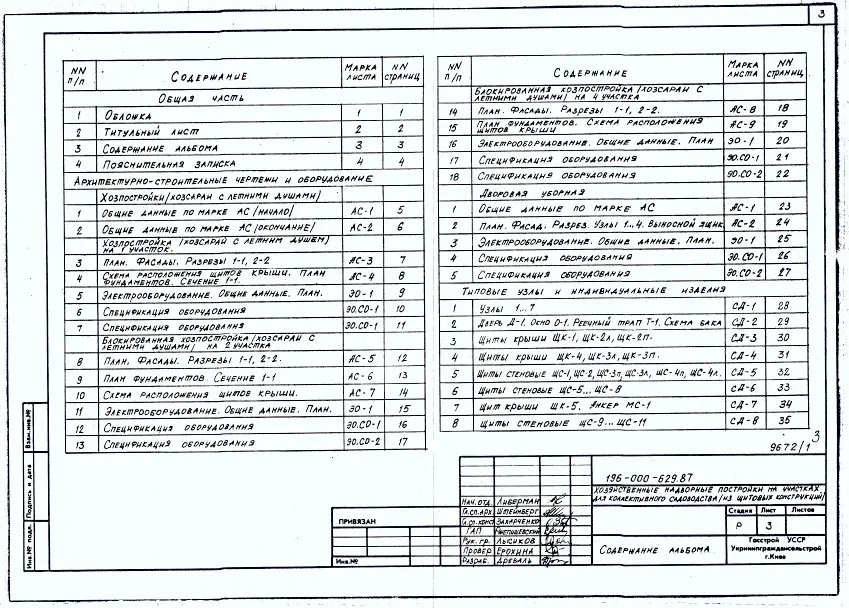 3
NN п/п Содержание Марка листа NN страниц
Общая часть
1 Обложка 1 1
2 Титульный лист 2 2
3 Содержание альбома 3 3
4 Пояснительная записка 4 4
Архитектурно-строительные чертежи и оборудование
Хозпостройки/хозсараи с летними душами/
1 Общие данные по марке АС/начало/ АС-1 5
2 Общие данные по марке АС/окончание/ АС-2 6
Хозпостройка/хозсарай с летним душем/
на 1 участок.
3 План. Фасады. Разрезы 1-1, 2-2 АС-3 7
4 Схема расположения щитов крыши. План
фундаментов. Сечение 1-1. АС-4 8
5 Электрооборудование. Общие данные. План. ЭО-1 9
6 Спецификация оборудования ЭО.СО-1 10
7 Спецификация оборудования ЭО.СО-1 11
Блокированная хозпостройка/хозсараи с
летними душами/ на 2 участка
8 План. Фасады. Разрезы 1-1, 2-2. АС-5 12
9 План фундаментов. Сечение 1-1 АС-6 13
10 Схема расположения щитов крыши. АС-7 14
11 Электрооборудование. Общие данные. План. ЭО-1 15
12 Спецификация оборудования ЭО.СО-1 16
13 Спецификация оборудования ЭО.СО-2 17
NN п/п Содержание Марка листа NN страниц
Блокированная хозпостройка/хозсараи с
летними душами/ на 4 участка
14 План. Фасады. Разрезы 1-1, 2-2. АС-8 18
15 План фундаментов. Схема расположения
щитов крыши АС-9 19
16 Электрооборудование. Общие данные. План ЭО-1 20
17 Спецификация оборудования ЭО.СО-1 21
18 Спецификация оборудования ЭО.СО-2 22
Дворовая уборная
1 Общие данные по марке АС АС-1 23
2 План. Фасад. Разрез. Узлы 1...4. Выносной ящик АС-2 24
3 Электрооборудование. Общие данные. План. ЭО-1 25
4 Спецификация оборудования ЭО.СО-1 26
5 Спецификация оборудования ЭО.СО-2 27
Типовые узлы и индивидуальные изделия
1 Узлы 1...7 СД-1 28
2 Дверь Д-1. Окно О-1. Реечный трап Т-1. Схема бака СД-2 29
3 Щиты крыши ЩК-1, ЩК-2л, ЩК-2п. СД-3 30
4 Щиты крыши ЩК-4, ЩК-3л, ЩК-3п. СД-4 31
5 Щиты стеновые ЩС-1, ЩС-2, ЩС-3п, ЩС-3л, ЩС-4п, ЩС-4л. СД-5 32
6 Щиты стеновые ЩС-5...ЩС-8 СД-6 33
7 Щит крыши ЩК-5. Анкер МС-1 СД-7 34
8 Щиты стеновые ЩС-9...ЩС-11 СД-8 35
9672/1 3
196-000-629.87
Хозяйственные надворные постройки на участках
для коллективного садоводства/из щитовых конструкций/
Нач. отд. Либерман
Гл.сп.арх. Штейнберг
Гл.сп.конст Захарченко
ГАП
Рук. гр. Лысиков
Провер. Ерохина
Разраб. Дребаль
Стадия Лист Листов
Р 3
Содержание альбома
Госстрой УССР
Укрниипграждансельстрой
г. Киев
Привязан
Инв.№
Взам.инв.№
Подпись и дата
Инв.№ подл.